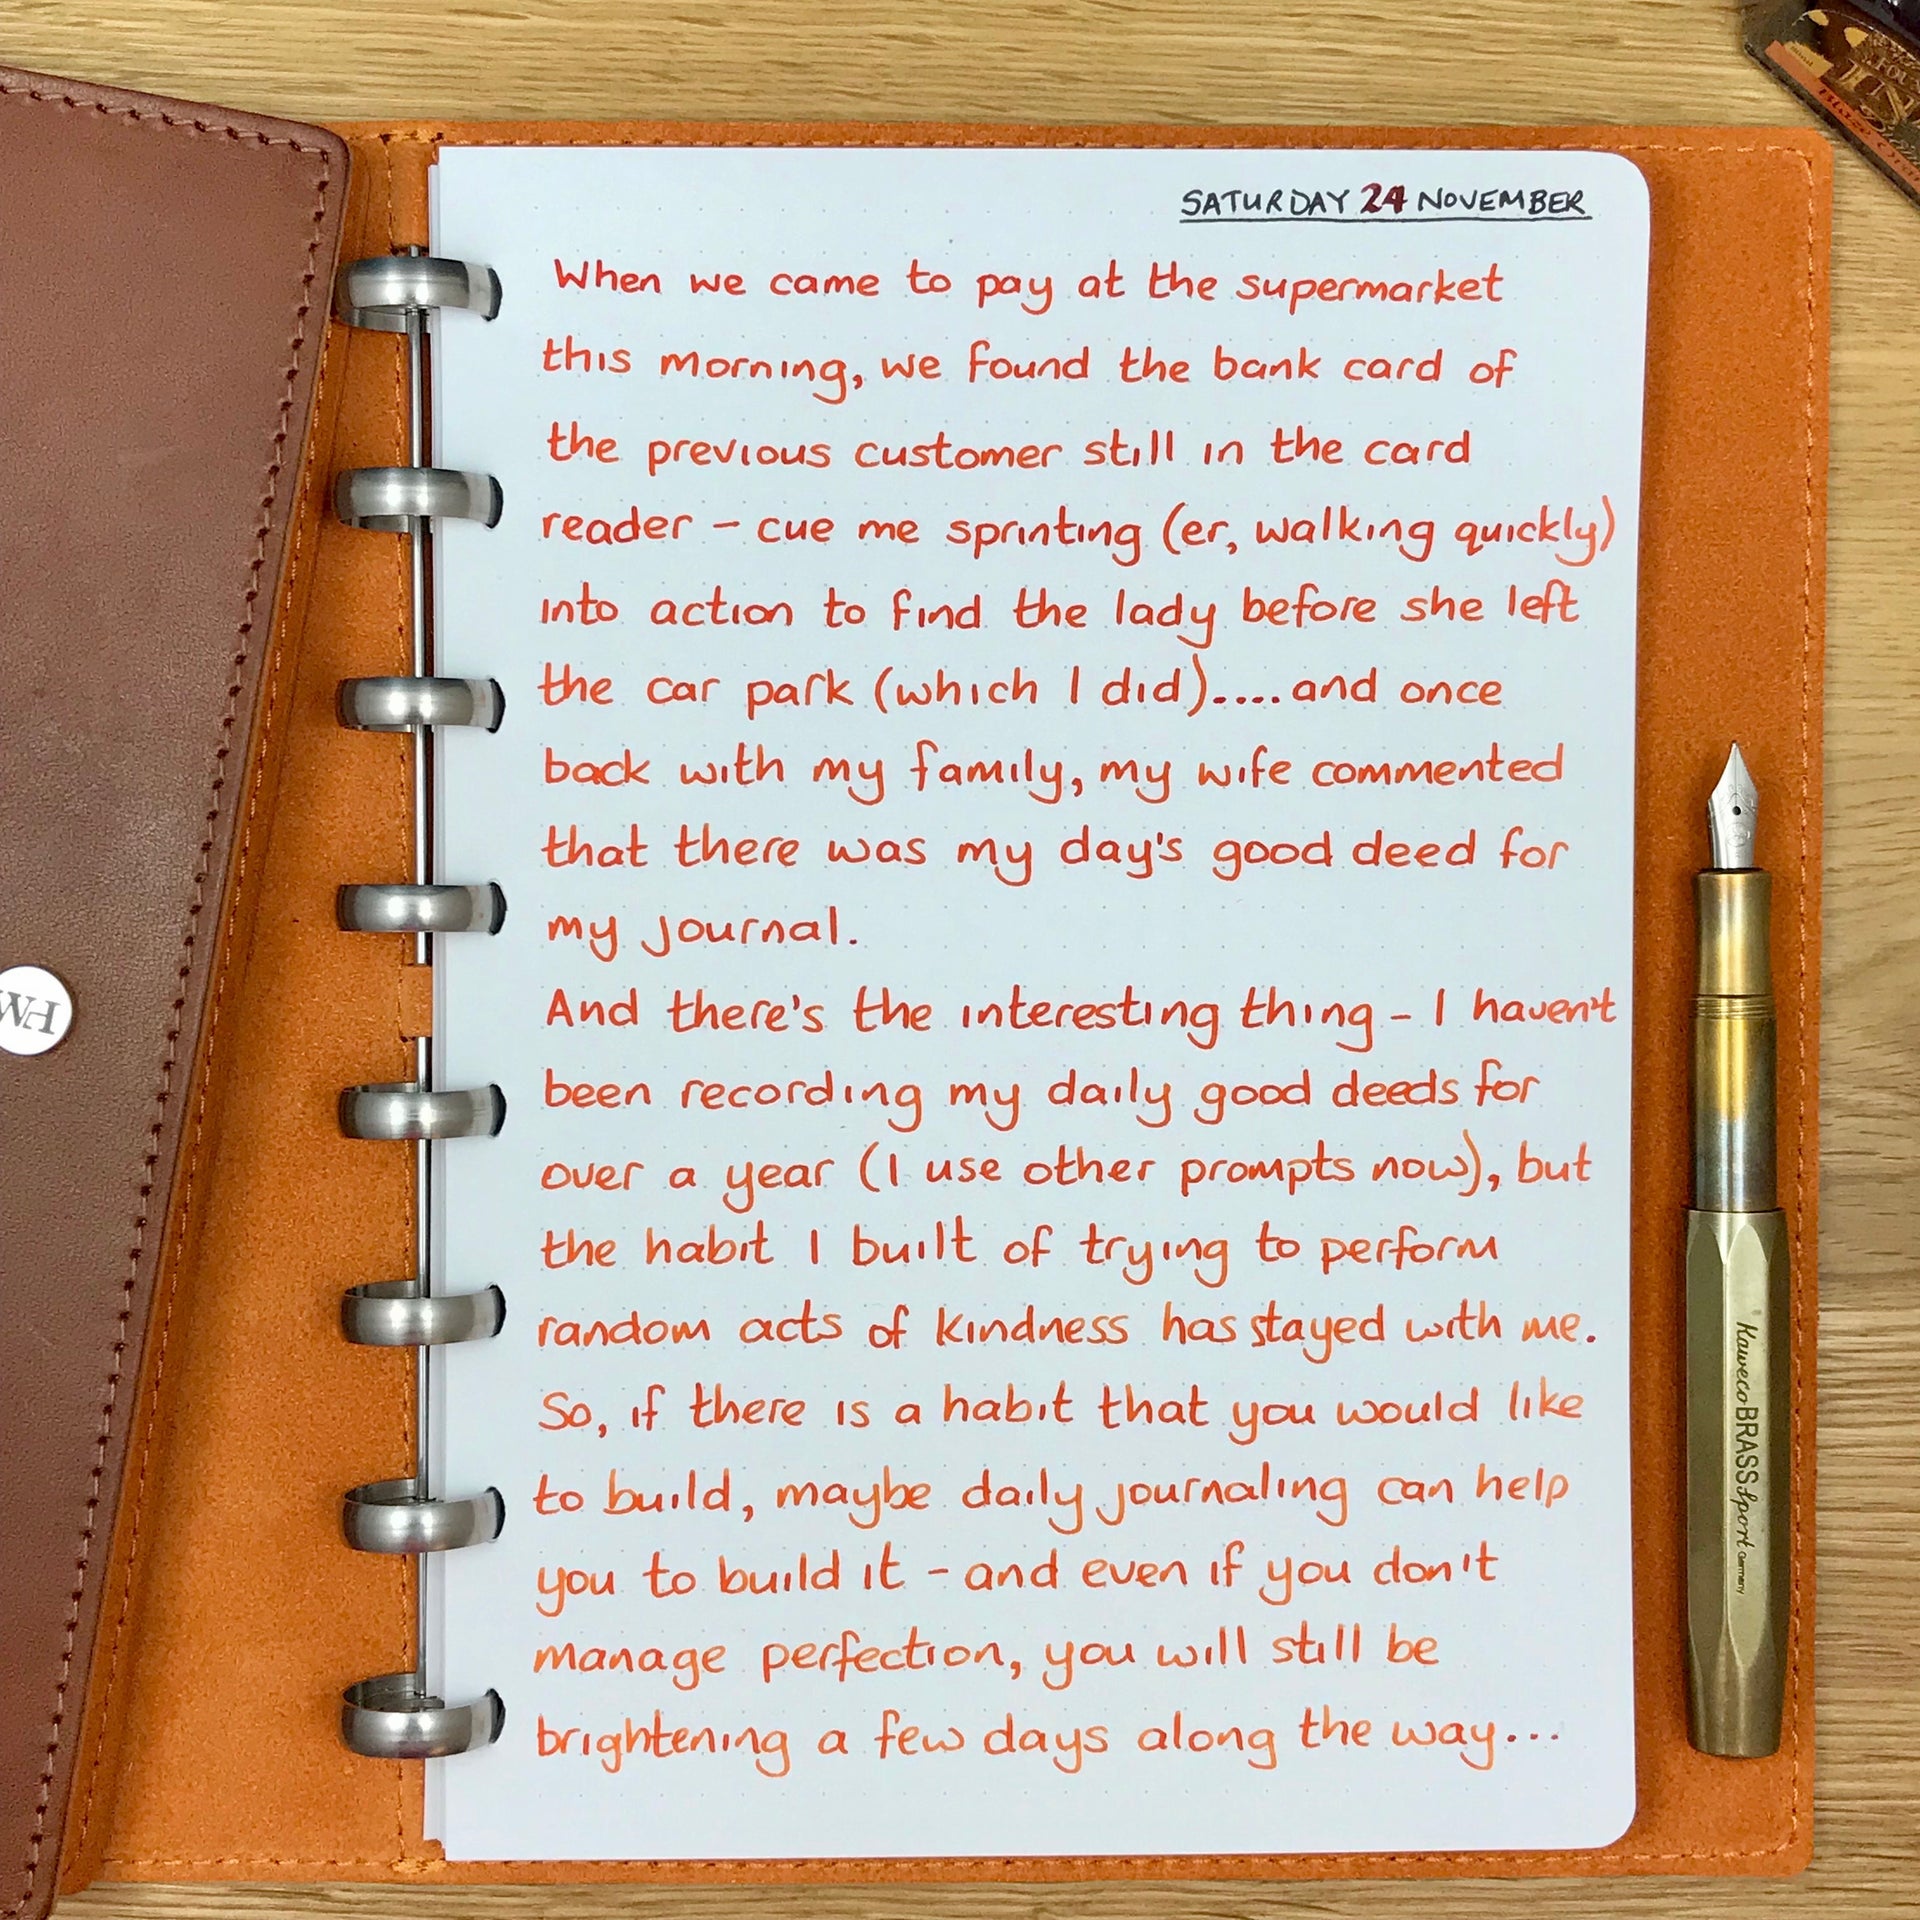 SATURDAY 24 NOVEMBER
When we came to pay at the supermarket
this morning, we found the bank card of
the previous customer still in the card
reader - cue me sprinting (er, walking quickly)
into action to find the lady before she left
the car park (which I did).... and once
back with my family, my wife commented
that there was my day's good deed for
my journal.
And there's the interesting thing - I haven't
been recording my daily good deeds for
over a year (I use other prompts now), but
the habit I built of trying to perform
random acts of kindness has stayed with me.
So, if there is a habit that you would like
to build, maybe daily journaling can help
you to build it - and even if you don't
manage perfection, you will still be
brightening a few days along the way...
WH
Kaweco BRASS Sport Germany